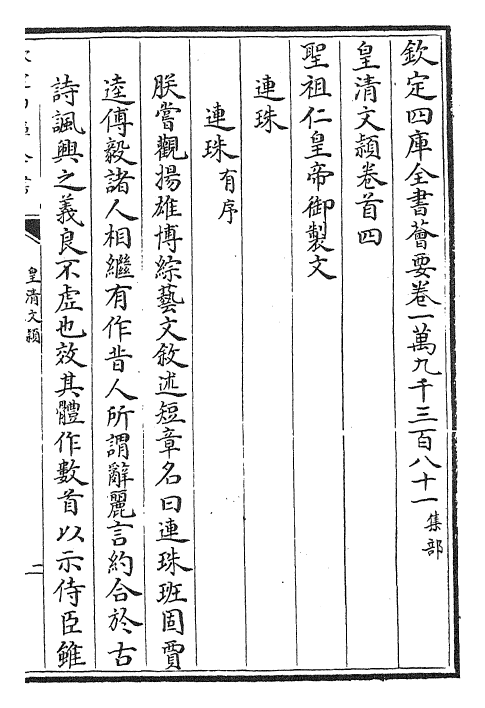 欽定四庫全書薈要卷一萬九千三百八十一集部
皇清文穎卷首四
聖祖仁皇帝御製文
連珠
連珠有序
朕嘗觀揚雄博綜藝文敘述短章名曰連珠班固賈
逵傅毅諸人相繼有作昔人所謂辭麗言約合於古
詩諷興之義良不虛也效其體作數首以示侍臣雖
皇清文穎
二